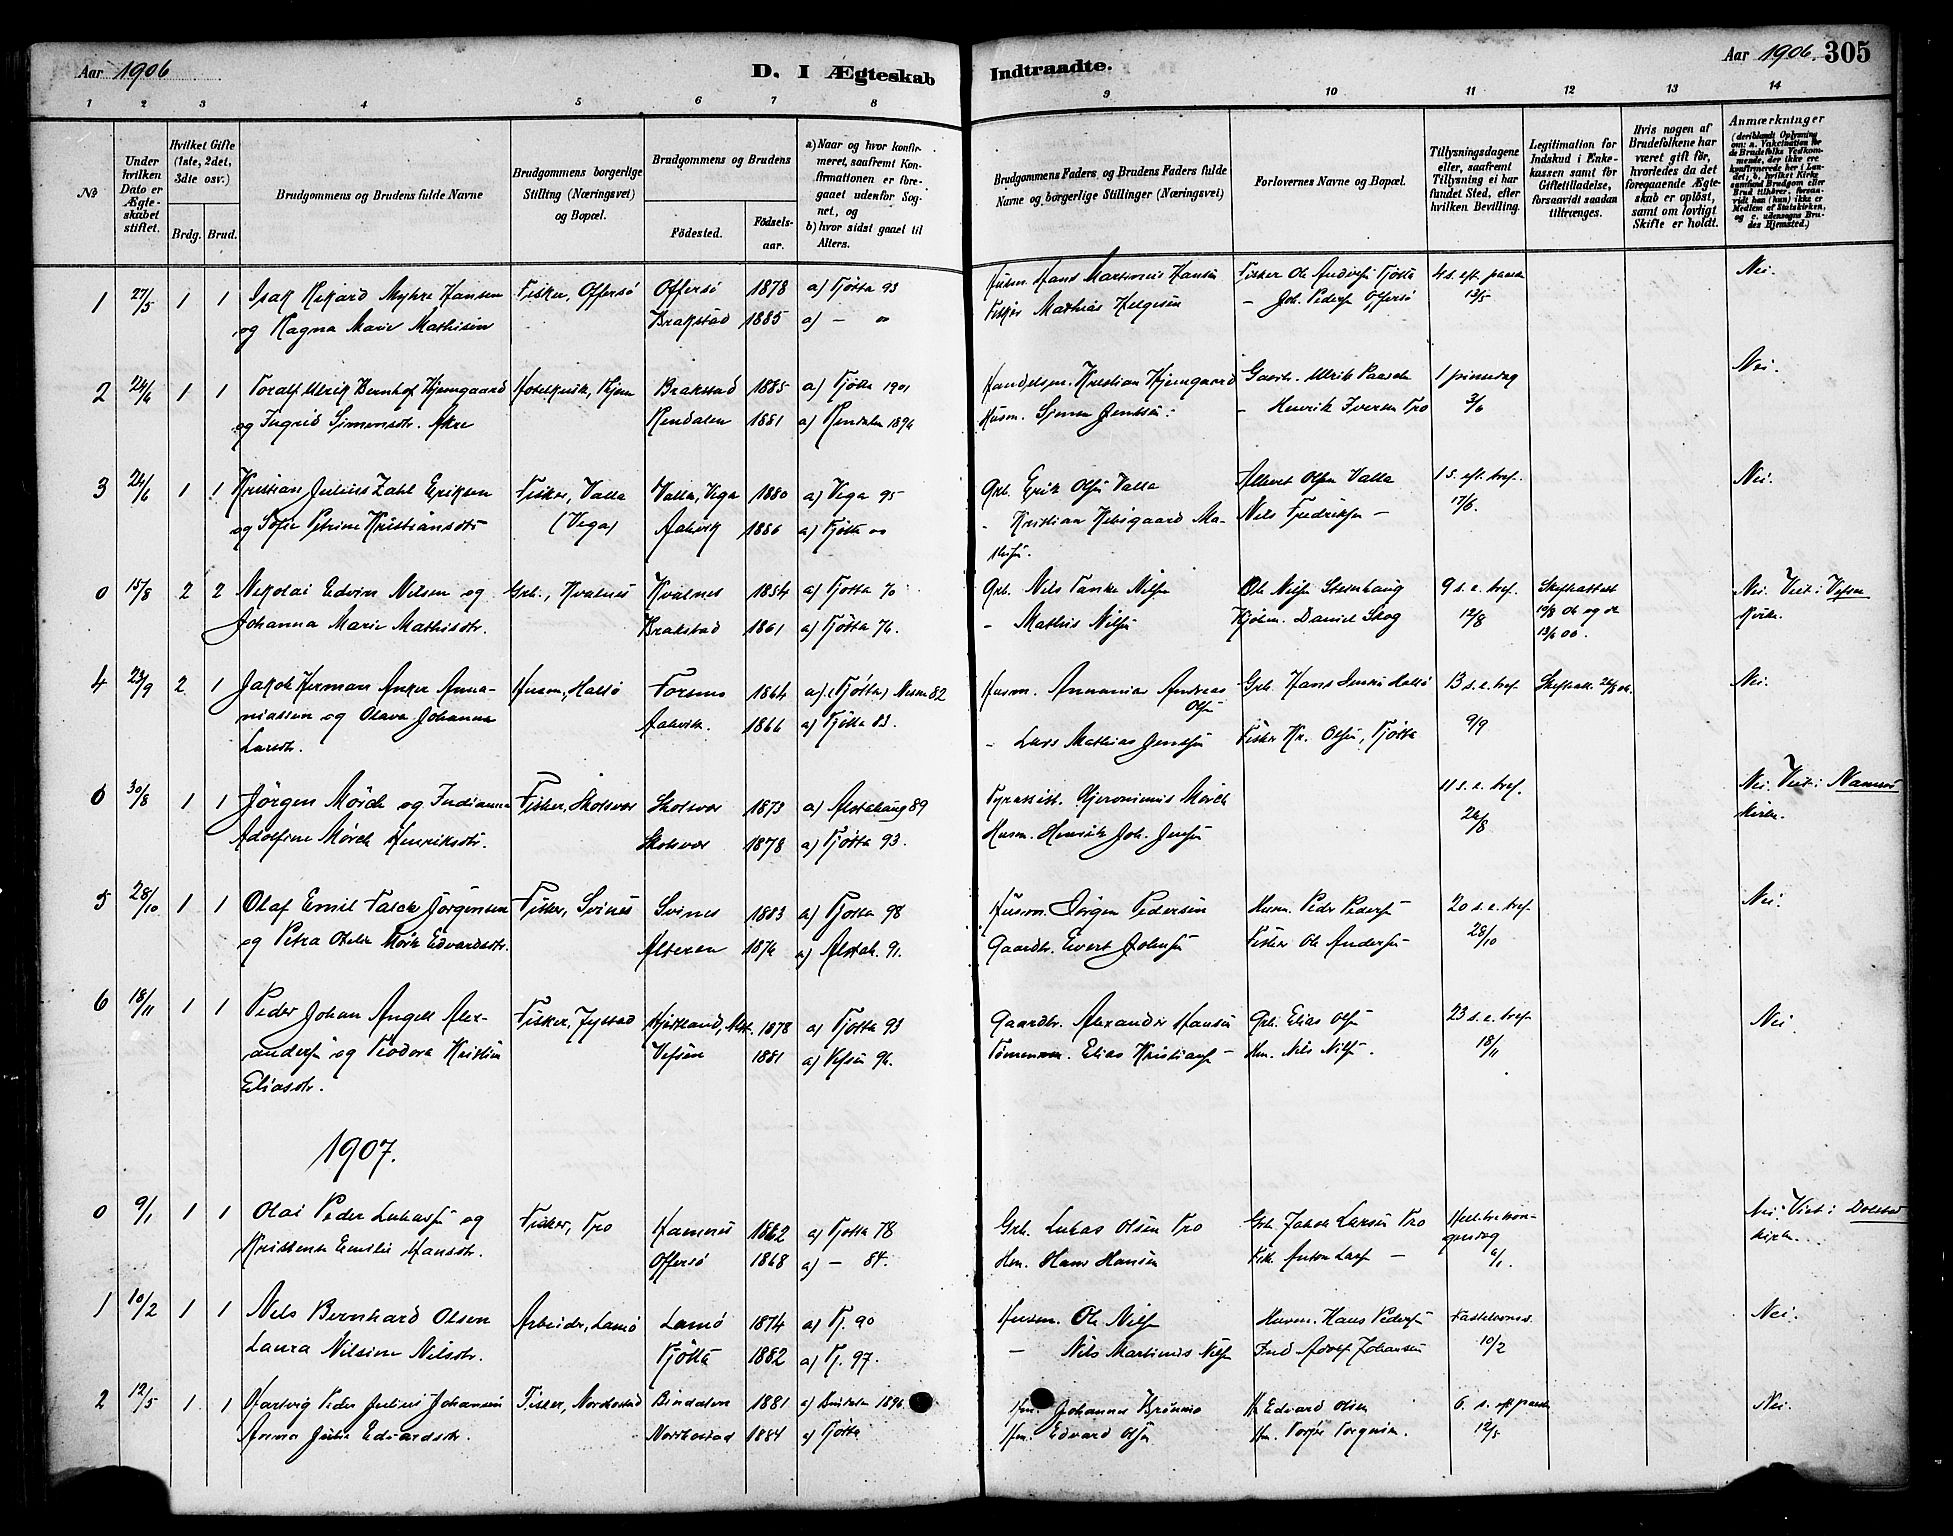 Aar 1906
D. I Ægteskab
Indtraadte.
Aar 1906. 305
1 2 3 4 5 6 7 8 9 10 11 12 13 14
No
Under hvilken Dato er Ægteskabet stiftet.
Hvilket Gifte (1ste, 2det, 3die osv.)
Brdg. Brud.
Brudgommens og Brudens fulde Navne
Brudgommens borgerlige Stilling (Næringsvei) og Bopæl.
Brudgommens og Brudens
Fødested.
Fødselsaar.
a) Naar og hvor konfirmeret, saafremt Konfirmationen er foregaaet udenfor Sognet, og
b) hvor sidst gaaet til Alters.
Brudgommens Faders og Brudens Faders fulde Navne og borgerlige Stillinger (Næringsvei)
Forlovernes Navne og Bopæl.
Tillysningsdagene eller, saafremt Tillysning ei har fundet Sted, efter hvilken Bevilling.
Legitimation for Indskud i Enkekassen samt for Giftetilladelse, forsaavidt saadan tiltrænges.
Hvis nogen af Brudefolkene har været gift før, hvorledes da det foregaaende Ægteskab er opløst, samt om lovligt Skifte er holdt.
Anmærkninger
(deriblandt Oplysning om: a. Vakcination for de Brudefolks Vedkommende, der ikke ere konfirmerede her i Landet; b. hvilket Kirkesamfund Brudgom eller Brud tilhører, forsaavidt han (hun) ikke er Medlem af Statskirken, og c. udensogns Brudes Hjemsted.)
1 27/5 1 1 Isak Rikard Myhre Hansen Fisker, Offersø Offersø 1878 a) Tjøtta 93 Husm. Hans Martinus Hansen Fisker Ole Anders. Tjøtta 4 s. eft. paaske Nei.
og Ragna Marie Mathisen Brakstad 1885 a) — 00 Fisker Mathias Helgesen — Joh. Peders. Offersø 13/5
2 24/6 1 1 Toralf Ulrik Bernhof Hjemgaard Brakstad 1885 a) Tjøtta 1901 Handelsm. Kristian Hjemgaard Gaardr. Ulrik 1 pinsedag Nei.
og Ingrid Simensdtr. Akre Rendalen 1881 a) Rendalen 1896 Husm. Simen Jensen — Henrik Iversen Tro 3/6
3 24/6 1 1 Kristian Julius Zahl Eriksen Fisker, Valla Valla, Vega 1880 a) Vega 95 Grb. Erik Olsen Valla Albert Olsen Valla 1 s. eft. tref. Nei.
og Sofie Petrine Kristiansdtr (Vega) Aakvik 1886 a) Tjøtta 00 — Kristian Ma- Nils Fredriksen — 17/6.
thisen.
0 15/8 2 2 Nikolai Edvin Nilsen og Grb., Kvalnes Kvalnes 1854 a) Tjøtta 70 Grb. Nils Tanke Nilsen Ole Nilsen Steinhaug 9 s. e. tref. Skifteattest Nei. Viet i Vefsn
Johanna Marie Mathisdtr. Brakstad 1861 a) Tjøtta 76. — Mathis Nilsen Kjøbm. Daniel Skog 12/8 og Kirke.
4 23/9 2 1 Jakob Herman Anker Anna- Husm., Halsø Forsmo 1864 a) (Tjøtta) 82 Husm. Annanias Andreas Grb. Hans Halsø 13 s. e. tref. Skifteatt. Nei.
niassen og Olava Johanna Aakvik. 1866 a) Tjøtta 83. Olsen 9/9
Larsdtr. — Lars Mathias Jensen Fisker Kr. Olsen, Tjøtta
0 30/8 1 1 Jörgen Mörch og Indianna Fisker, Skotsvær Skotsvær 1873 a) Alstahaug 89 Hjeronimus Mörch 11 s. e. tref. Nei. Viet i Namsos
Adolfine Mörch Henriksdtr. Skotsvær 1878 a) Tjøtta 93. Husm. Henrik Joh. Jensen 26/8 Kirke.
5 28/10 1 1 Olaf Emil Falck Jörgensen Fisker, Svines Svines 1883 a) Tjøtta 98 Husm. Jørgen Pedersen Husm. Peder Pedersen 20 s. e. tref Nei.
og Petra Otelie Mörk Edvardsdtr. Alteren 1874 a) Alstah. 91. Gaardbr. Evert Johnsen Fisker Ole Andersen 28/10
6 18/11 1 1 Peder Johan Angell Alex- Fisker, Alst. 1878 a) Tjøtta 93 Gaardbr. Alexander Hansen Grb. Elias Olsen 23 s. e. tref Nei.
andersen og Teodora Kristine Vefsen 1881 a) Vefsen 96. Tømmerm. Elias Kristians. Hm. Nils Nilsen. 18/11
Eliasdtr.
1907.
0 9/1 1 1 Olai Peder Lukassen og Fisker, Tro Hamnes 1862 a) Tjøtta 78 Grb. Lukas Olsen Tro Grb. Jakob Larsen Tro Nei. Viet i Dolstad
Kristense Emilie Hansdtr. Offersø 1868 a) — 84. Hm. Hans Hansen Fisk. Anton Lars. — 6/1 Kirke.
1 10/2 1 1 Nils Bernhard Olsen Arbeider, Lamø Lamø 1874 a) Tj. 90 Husm. Ole Nilsen Husm. Hans Pedersen Fastelavns. Nei.
Laura Nilsine Nilsdtr. Tjøtta 1882 a) Tj. 97. — Nils Martinus Nilsen Adolf Johansen 10/2
2 12/5 1 1 Hartvig Peder Julius Johansen Fisker, Bindalen 1881 a) Bindalen 1896 Hm. Johannes Edvard Olsen 6. s. eft. paaske Nei.
Anna Julie Edvardsdtr. 1884 a) Tjøtta Hm. Edvard Olsen Hm. 12/5